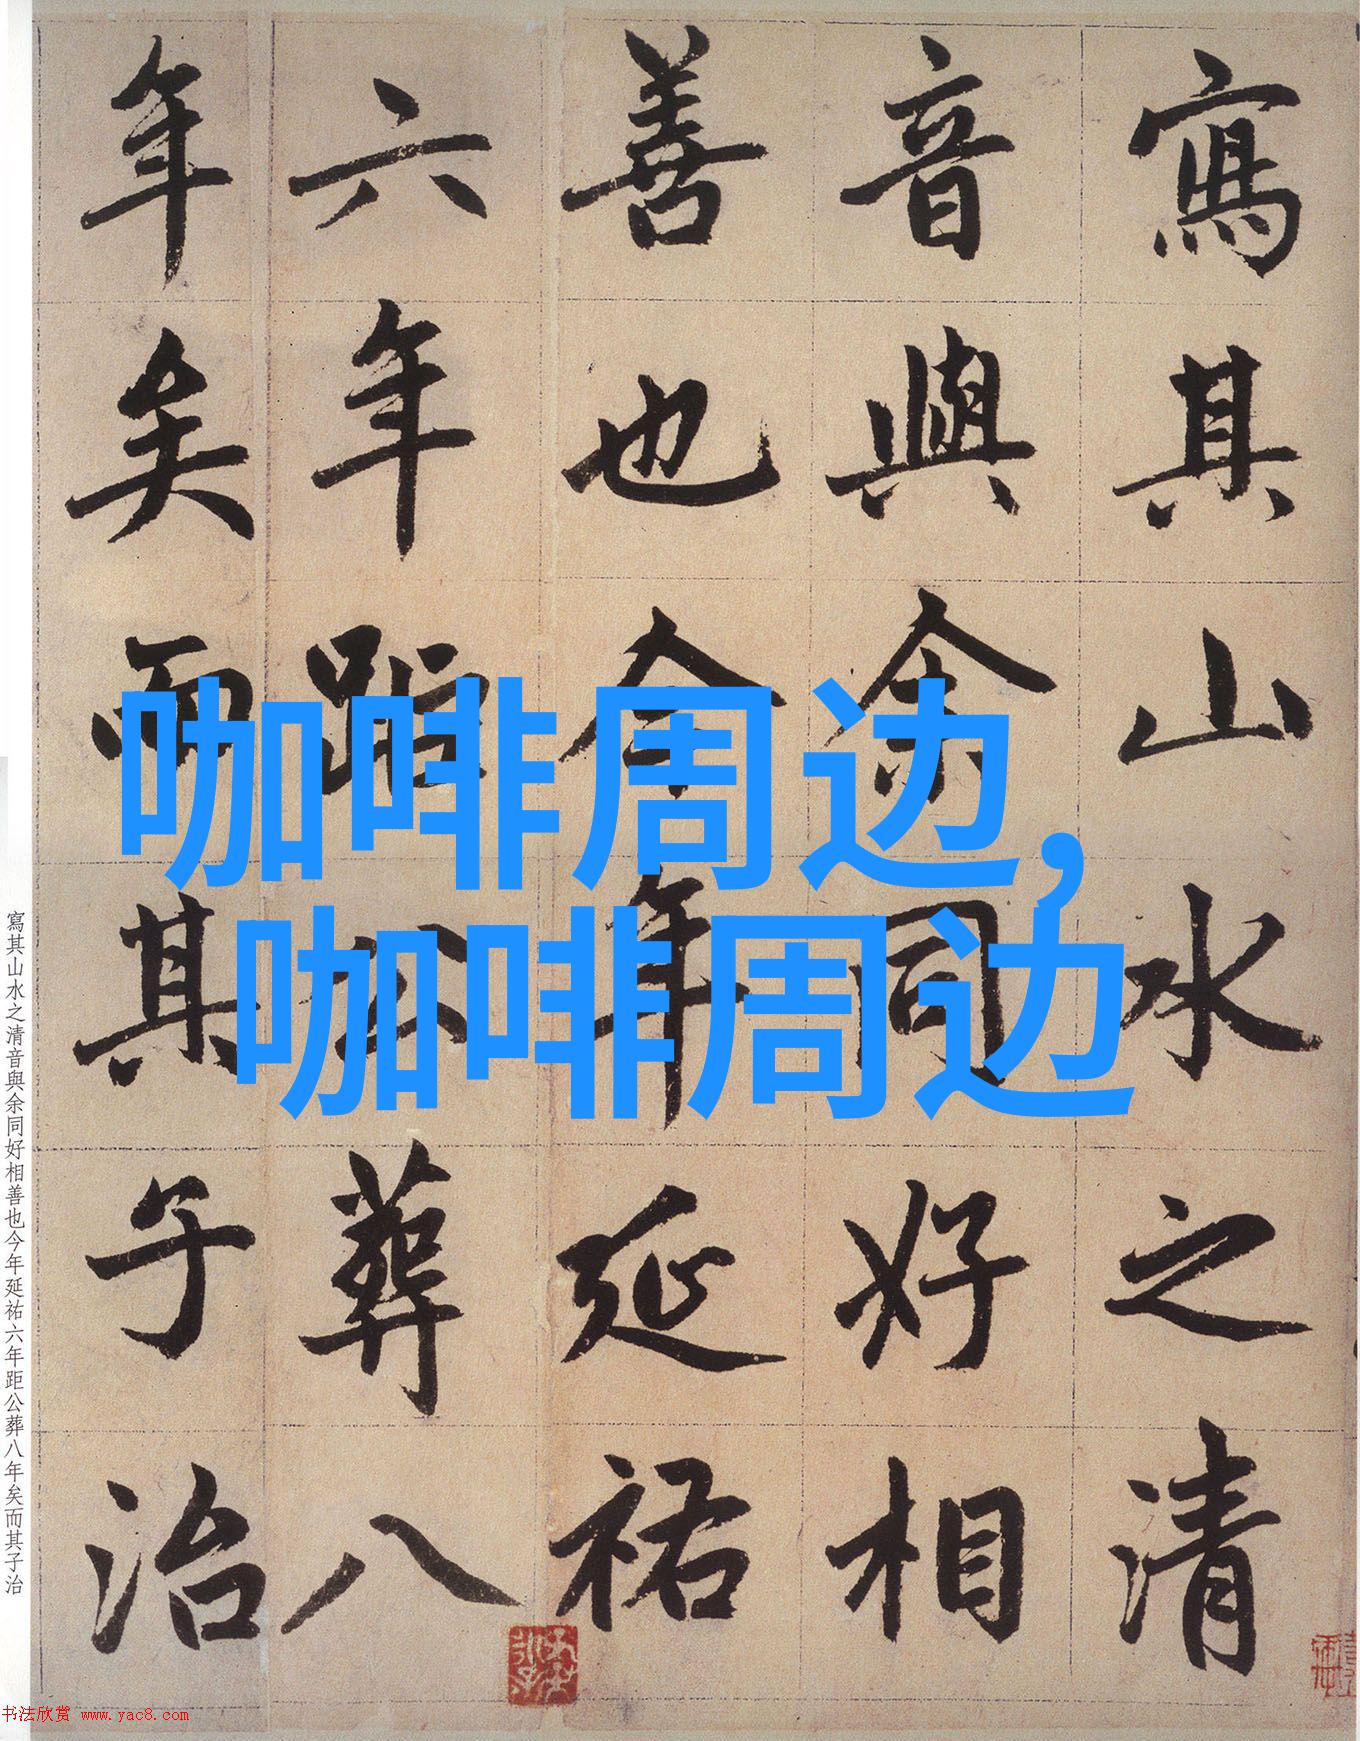 寫其山水之清
音與余同好相
善也今年延祐
六年距公葬八
年矣而其子治
寫其山水之清音與余同好相善也今年延祐六年距公葬八年矣而其子治
咖啡周边,
咖啡周边
书法欣赏 www.yac8.com